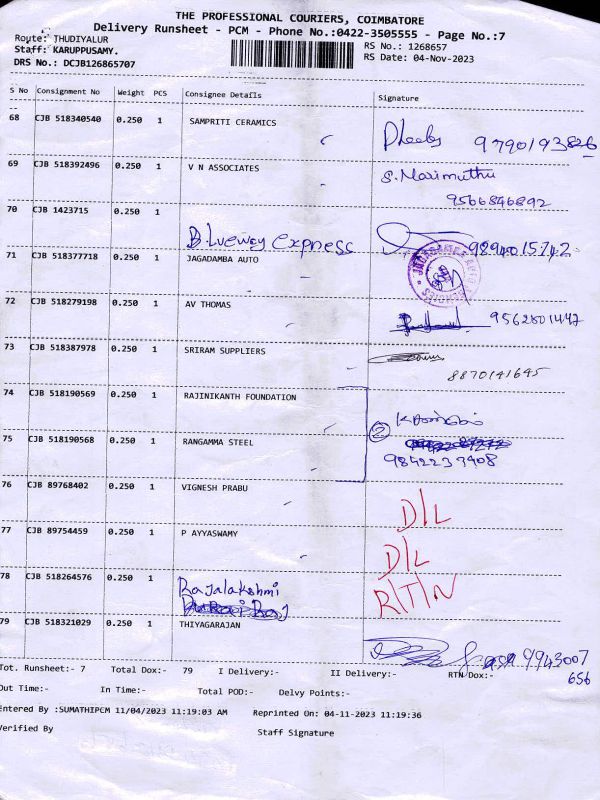 THE PROFESSIONAL COURIERS, COIMBATORE
Delivery Runsheet - PCM - Phone No.:0422-3505555 - Page No.:7
Route: THUDIYALUR
Staff: KARUPPUSAMY.
RS No.: 1268657
DRS No.: DCJB126865707
RS Date: 04-Nov-2023
S No Consignment No Weight PCS Consignee Details Signature
68 CJB 518340540 0.250 1 SAMPRITI CERAMICS
9790193826
69 CJB 518392496 0.250 1 V N ASSOCIATES S. Marimuthu
9566846892
70 CJB 1423715 0.250 1
B.Lueway express 9894015742
71 CJB 518377718 0.250 1 JAGADAMBA AUTO
72 CJB 518279198 0.250 1 AV THOMAS 9562801447
73 CJB 518387978 0.250 1 SRIRAM SUPPLIERS
8870141645
74 CJB 518190569 0.250 1 RAJINIKANTH FOUNDATION
2
75 CJB 518190568 0.250 1 RANGAMMA STEEL
9842233408
76 CJB 89768402 0.250 1 VIGNESH PRABU
D/L
77 CJB 89754459 0.250 1 P AYYASWAMY
D/L
78 CJB 518264576 0.250 1 Rajalakshmi R/T/N
79 CJB 518321029 0.250 1 THIYAGARAJAN
9943007
656
Tot. Runsheet:- 7 Total Dox:- 79 I Delivery:- II Delivery:- RTN Dox:-
Out Time:- In Time:- Total POD:- Delvy Points:-
Entered By :SUMATHIPCM 11/04/2023 11:19:03 AM Reprinted On: 04-11-2023 11:19:36
Verified By Staff Signature